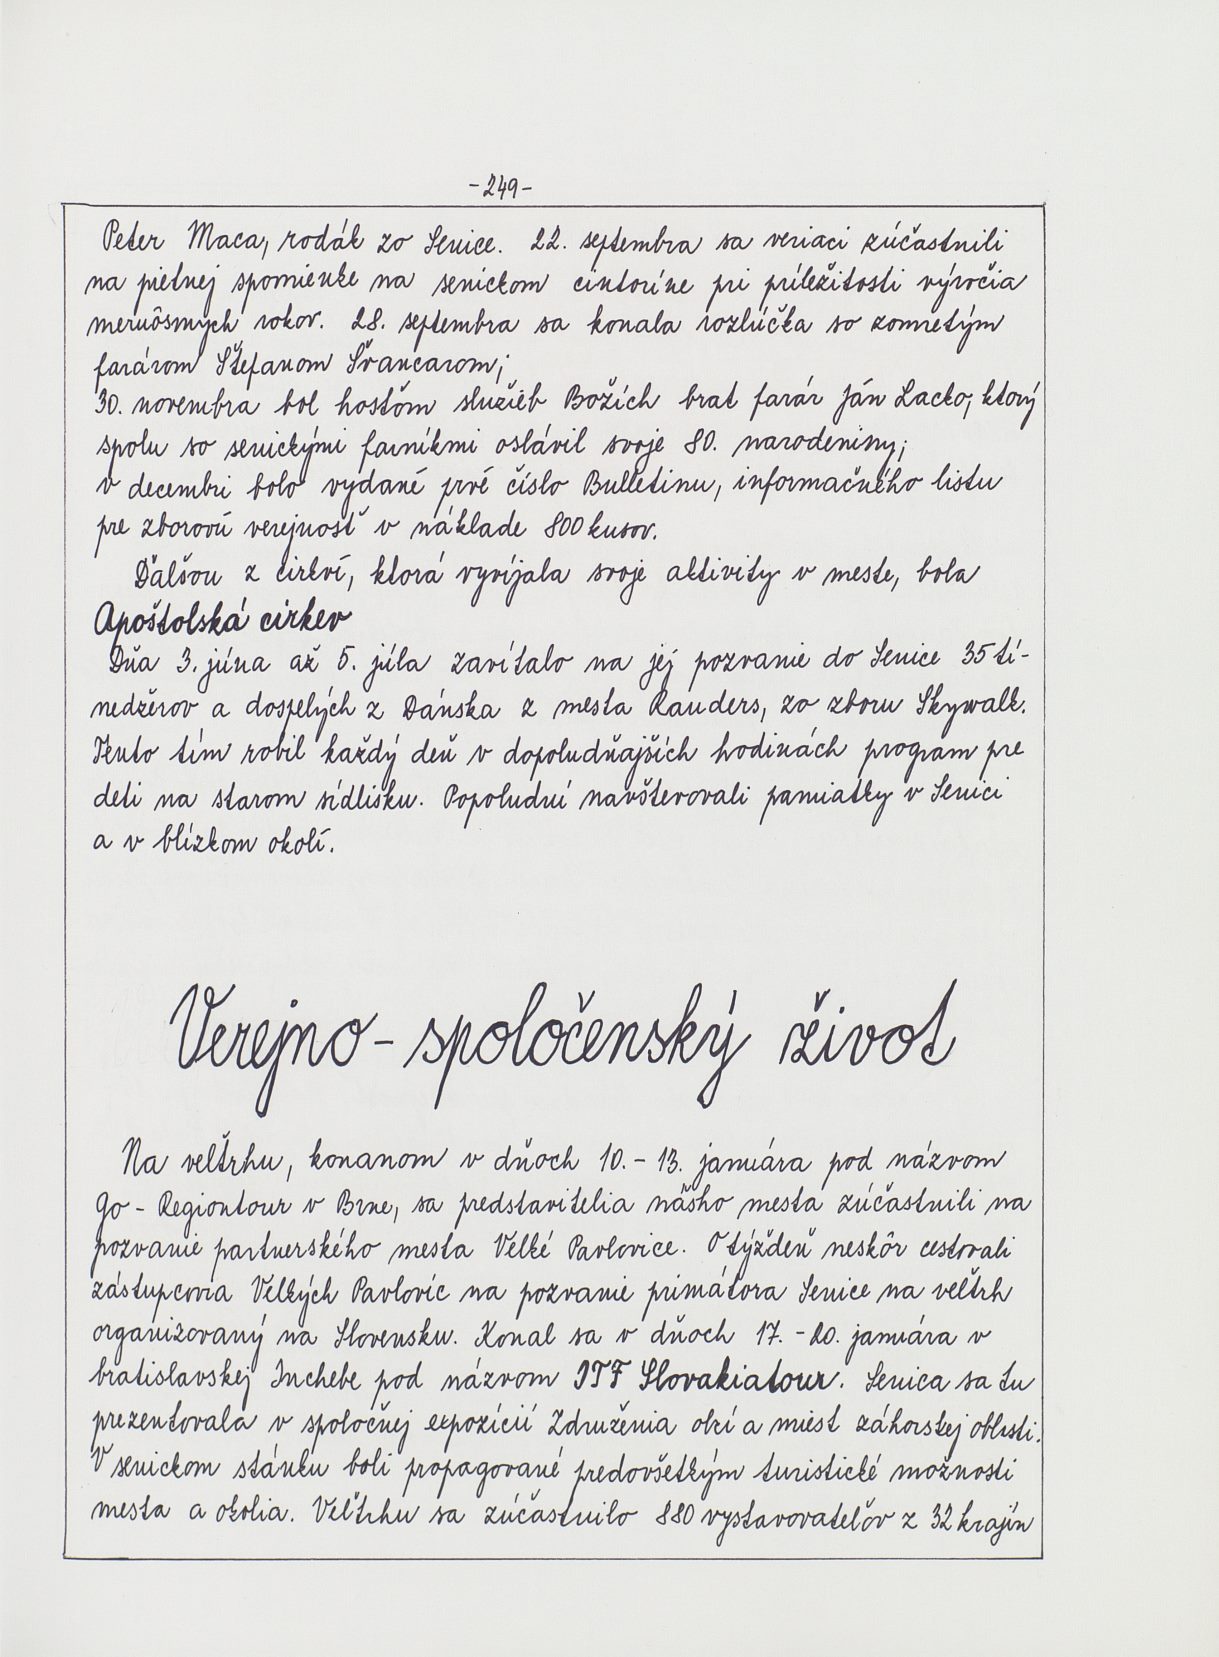 -249-
Peter Maca, rodák zo Senice. 22. septembra sa veriaci zúčastnili
na pietnej spomienke na senickom cintoríne pri príležitosti výročia
meruôsmych rokov. 28. septembra sa konala rozlúčka so zomretým
farárom Štefanom Švancarom;
30. novembra bol hosťom služieb Božích brat farár Ján Lacko, ktorý
spolu so senickými farníkmi oslávil svoje 80. narodeniny;
v decembri bolo vydané prvé číslo Bulletinu, informačného listu
pre zborovú verejnosť v náklade 800 kusov.
Ďalšou z cirkví, ktorá vyvíjala svoje aktivity v meste, bola
Apoštolská cirkev
Dňa 3. júna až 5. júla zavítalo na jej pozvanie do Senice 35 tí-
nedžérov a dospelých z Dánska z mesta Randers, zo zboru Skywalk.
Tento tím robil každý deň v dopoludňajších hodinách program pre
deti na starom sídlisku. Popoludní navšterovali pamiatky v Senici
a v blízkom okolí.
Verejno-spoločenský život
Na veľtrhu, konanom v dňoch 10.-13. januára pod názvom
Go-Regiontour v Brne, sa predstavitelia nášho mesta zúčastnili na
pozvanie partnerského mesta Velké Pavlovice. O týždeň neskôr cestovali
zástupcovia Velkých Pavlovíc na pozvanie primátora Senice na veľtrh
organizovaný na Slovensku. Konal sa v dňoch 17.-20. januára v
bratislavskej Inchebe pod názvom ITF Slovakiatour. Senica sa tu
prezentovala v spoločnej expozícií Združenia obcí a miest záhorskej oblasti.
V senickom stánku boli propagované predovšetkým turistické možnosti
mesta a okolia. Veľtrhu sa zúčastnilo 880 vystavovateľov z 32 krajín